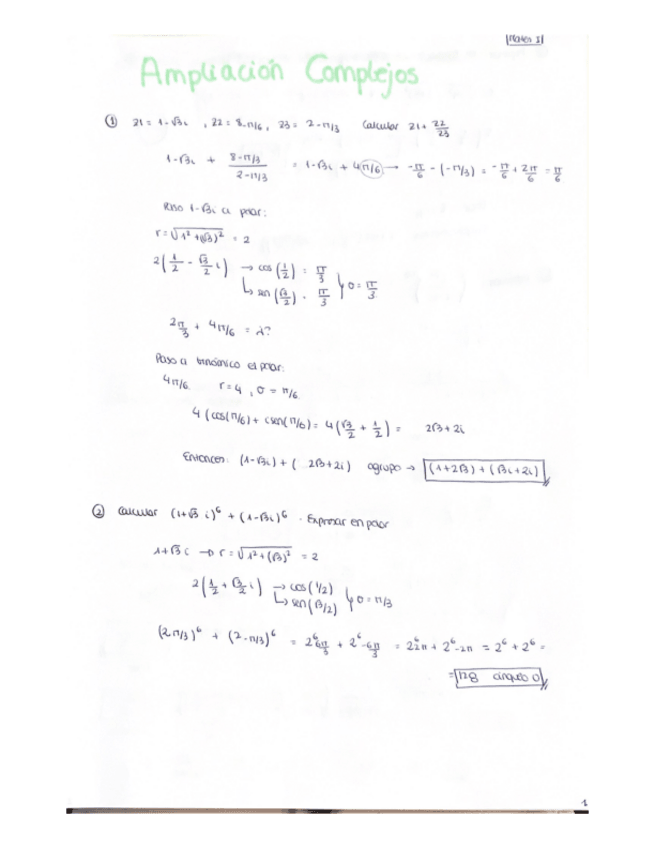 Mates I
Ampliación Complejos
① z1 = 1-√3i , z2 = 8-π/6 , z3 = 2-π/3 Calcular z1+ z2/z3
1-√3i + 8-π/3 / 2-π/3 = 1-√3i + 4π/6 → -π/6 - (-π/3) = -π/6 + 2π/6 = π/6
Paso 1-√3i a polar:
r = √1²+(√3)² = 2
2(1/2 - √3/2 i) → cos(1/2) = π/3
↳ sen(√3/2) = π/3 } σ = π/3
2π/3 + 4π/6 = ¿?
Paso a binómico el polar:
4π/6 r=4 , σ = π/6
4(cos(π/6)+ isen(π/6) = 4(√3/2 + 1/2) = 2√3+2i
Entonces: (1-√3i)+( 2√3+2i) agrupo → (1+2√3)+(√3i+2i)
② Calcular (1+√3 i)⁶ + (1-√3i)⁶ . Expresar en polar
1+√3i → r = √1²+(√3)² = 2
2(1/2 + √3/2 i) → cos(1/2)
↳ sen(√3/2) } σ = π/3
(2π/3)⁶ + (2-π/3)⁶ = 2⁶6π/3 + 2⁶-6π/3 = 2⁶2π + 2⁶-2π = 2⁶+2⁶ =
= 128 ángulo 0
1